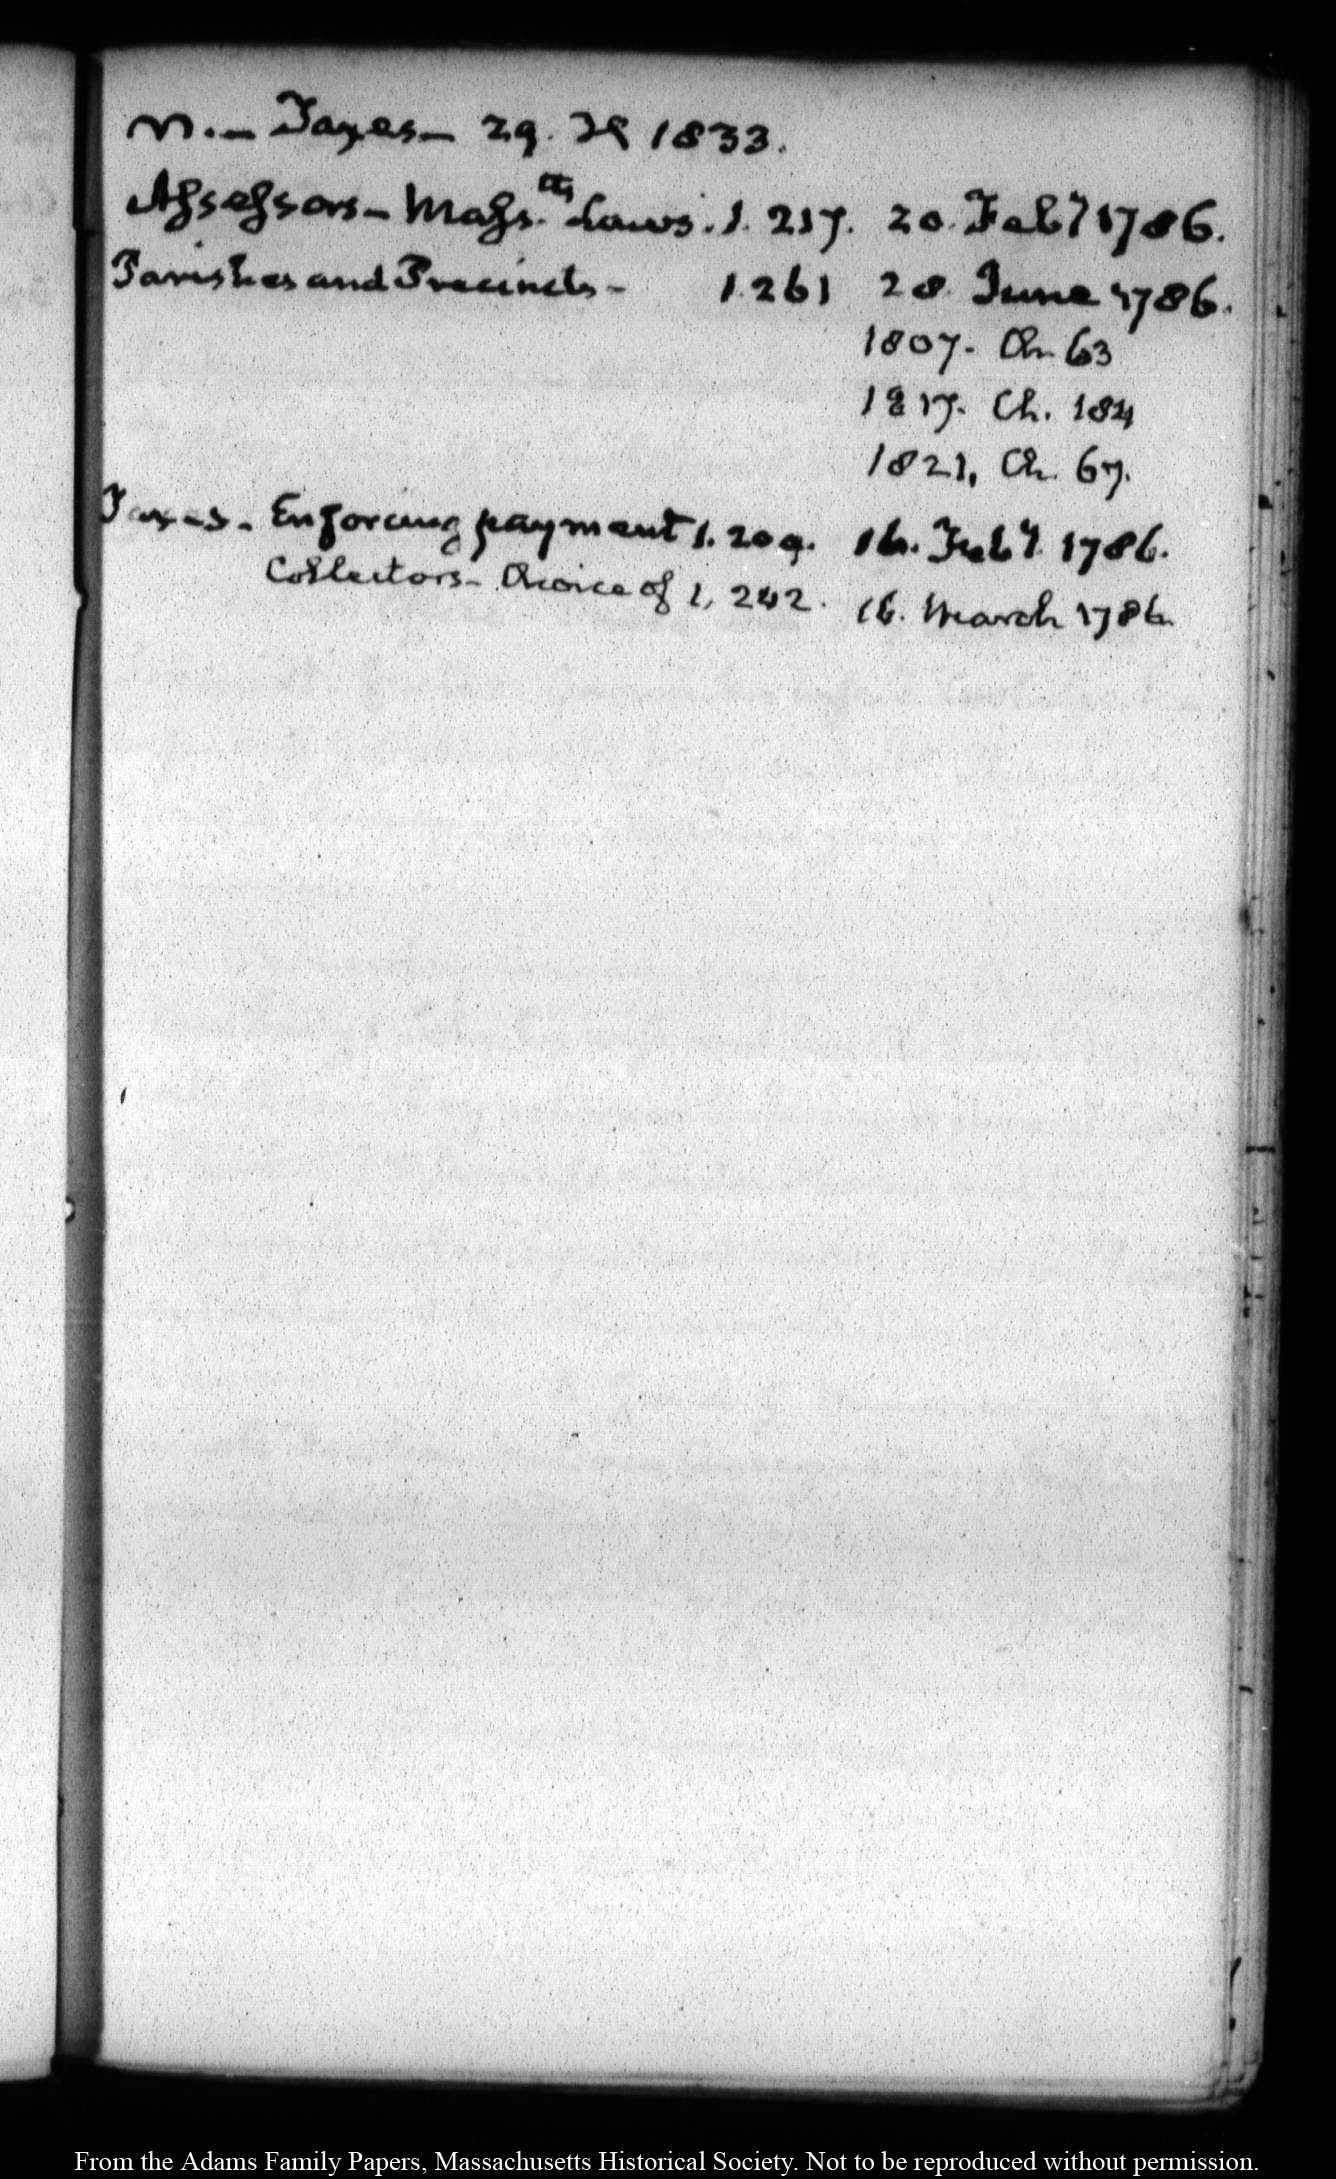 Taxes— 29. 1833.
Assessors— Mass.ts Laws. 1. 217. 20. Feby 1786.
Parishes and Precincts— 1. 261 28. June 1786.
1807. Ch. 63
1817. Ch. 184
1821, Ch. 67.
Taxes— Enforcing payment 1. 209. 16. Feby 1786.
Collectors— Choice of 1, 242. 16. March 1786.
From the Adams Family Papers, Massachusetts Historical Society. Not to be reproduced without permission.